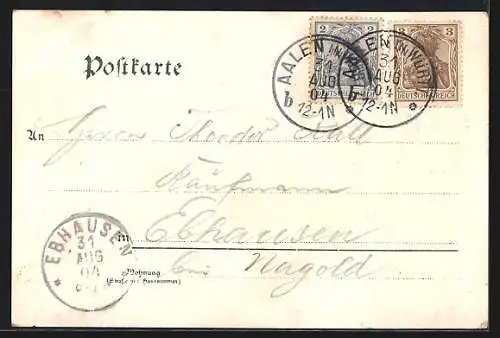 2 3
DEUTSCHES REICH DEUTSCHES REICH
AALEN IN WÜRTT. 31 AUG 04 12-1N b
AALEN IN WÜRTT. 31 AUG 04 12-1N b
Postkarte
An Herrn Theodor
Kaufmann
in Ebhausen
bei Nagold
EBHAUSEN 31 AUG 04
Wohnung
(Straße und Hausnummer)